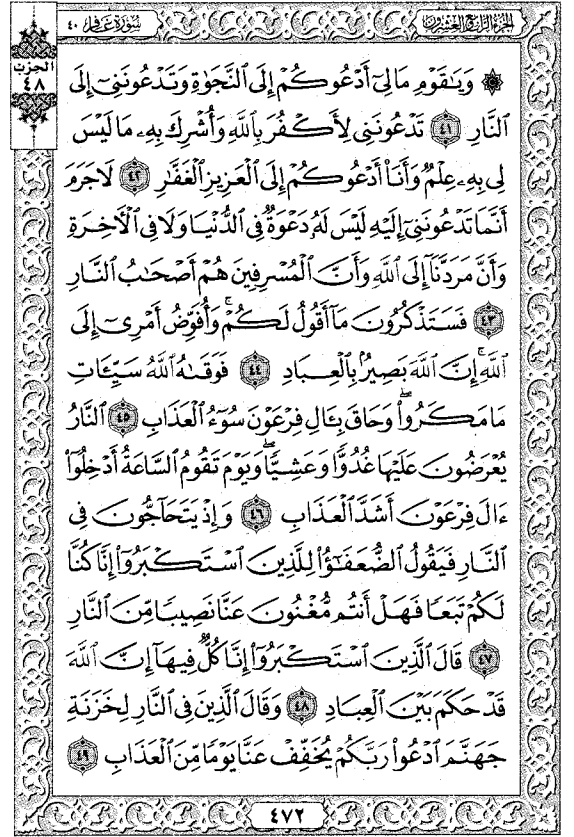 الجزء الرابع والعشرون
سورة غافر ٤٠
الحزب
٤٨
۞ وَيَٰقَوْمِ مَالِيٓ أَدْعُوكُمْ إِلَى ٱلنَّجَوٰةِ وَتَدْعُونَنِيٓ إِلَى
ٱلنَّارِ ٤١ تَدْعُونَنِي لِأَكْفُرَ بِٱللَّهِ وَأُشْرِكَ بِهِۦ مَا لَيْسَ
لِي بِهِۦ عِلْمٌ وَأَنَا۠ أَدْعُوكُمْ إِلَى ٱلْعَزِيزِ ٱلْغَفَّٰرِ ٤٢ لَا جَرَمَ
أَنَّمَا تَدْعُونَنِيٓ إِلَيْهِ لَيْسَ لَهُۥ دَعْوَةٌ فِي ٱلدُّنْيَا وَلَا فِي ٱلْأَخِرَةِ
وَأَنَّ مَرَدَّنَآ إِلَى ٱللَّهِ وَأَنَّ ٱلْمُسْرِفِينَ هُمْ أَصْحَٰبُ ٱلنَّارِ
٤٣ فَسَتَذْكُرُونَ مَآ أَقُولُ لَكُمْۚ وَأُفَوِّضُ أَمْرِيٓ إِلَى
ٱللَّهِۚ إِنَّ ٱللَّهَ بَصِيرٌۢ بِٱلْعِبَادِ ٤٤ فَوَقَىٰهُ ٱللَّهُ سَيِّـَٔاتِ
مَا مَكَرُوا۟ۖ وَحَاقَ بِـَٔالِ فِرْعَوْنَ سُوٓءُ ٱلْعَذَابِ ٤٥ ٱلنَّارُ
يُعْرَضُونَ عَلَيْهَا غُدُوًّا وَعَشِيًّاۖ وَيَوْمَ تَقُومُ ٱلسَّاعَةُ أَدْخِلُوٓا۟
ءَالَ فِرْعَوْنَ أَشَدَّ ٱلْعَذَابِ ٤٦ وَإِذْ يَتَحَآجُّونَ فِي
ٱلنَّارِ فَيَقُولُ ٱلضُّعَفَٰٓؤُا۟ لِلَّذِينَ ٱسْتَكْبَرُوٓا۟ إِنَّا كُنَّا
لَكُمْ تَبَعًا فَهَلْ أَنتُم مُّغْنُونَ عَنَّا نَصِيبًا مِّنَ ٱلنَّارِ
٤٧ قَالَ ٱلَّذِينَ ٱسْتَكْبَرُوٓا۟ إِنَّا كُلٌّ فِيهَآ إِنَّ ٱللَّهَ
قَدْ حَكَمَ بَيْنَ ٱلْعِبَادِ ٤٨ وَقَالَ ٱلَّذِينَ فِي ٱلنَّارِ لِخَزَنَةِ
جَهَنَّمَ ٱدْعُوا۟ رَبَّكُمْ يُخَفِّفْ عَنَّا يَوْمًا مِّنَ ٱلْعَذَابِ ٤٩
٤٧٢